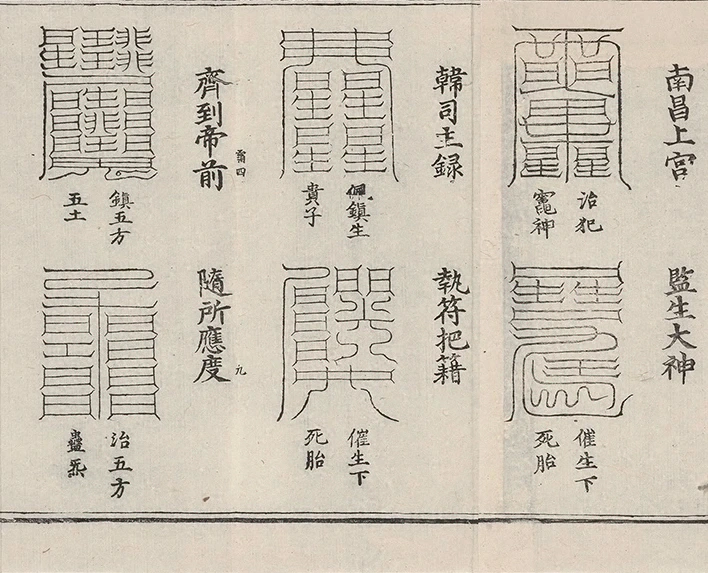 南昌上宫
治犯
竈神
監生大神
催生下
死胎
韓司主録
佩鎮生
貴子
執符把籍
催生下
死胎
齊到帝前
四
鎮五方
五土
隨所應度
九
治五方
蠱炁